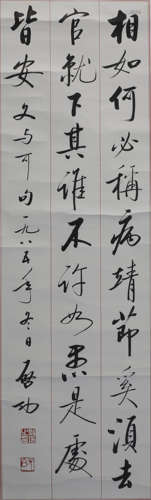 相如何必稱病靖節奚須去
官就下其誰不許如愚是處
皆安 文与可句 一九八五年冬日 啓功